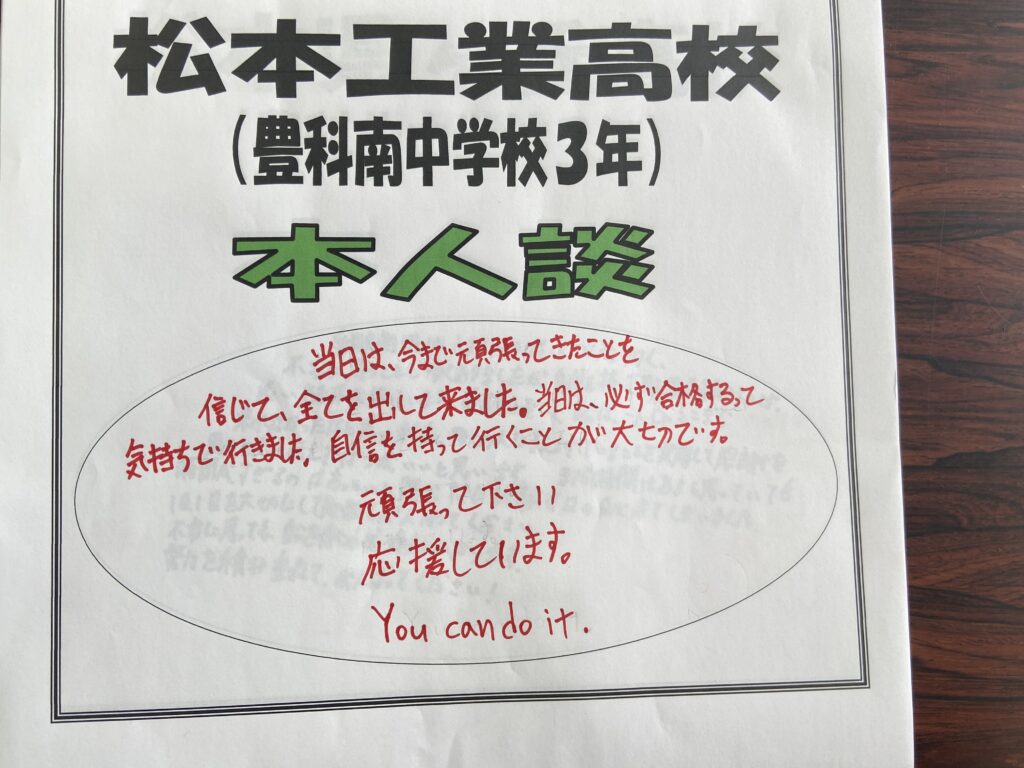 松本工業高校
(豊科南中学校3年)
本人談
当日は、今まで頑張ってきたことを
信じて、全てを出して来ました。当日は、必ず合格するって
気持ちで行きました。自信を持って行くことが大切です。
頑張って下さい
応援しています。
You can do it.